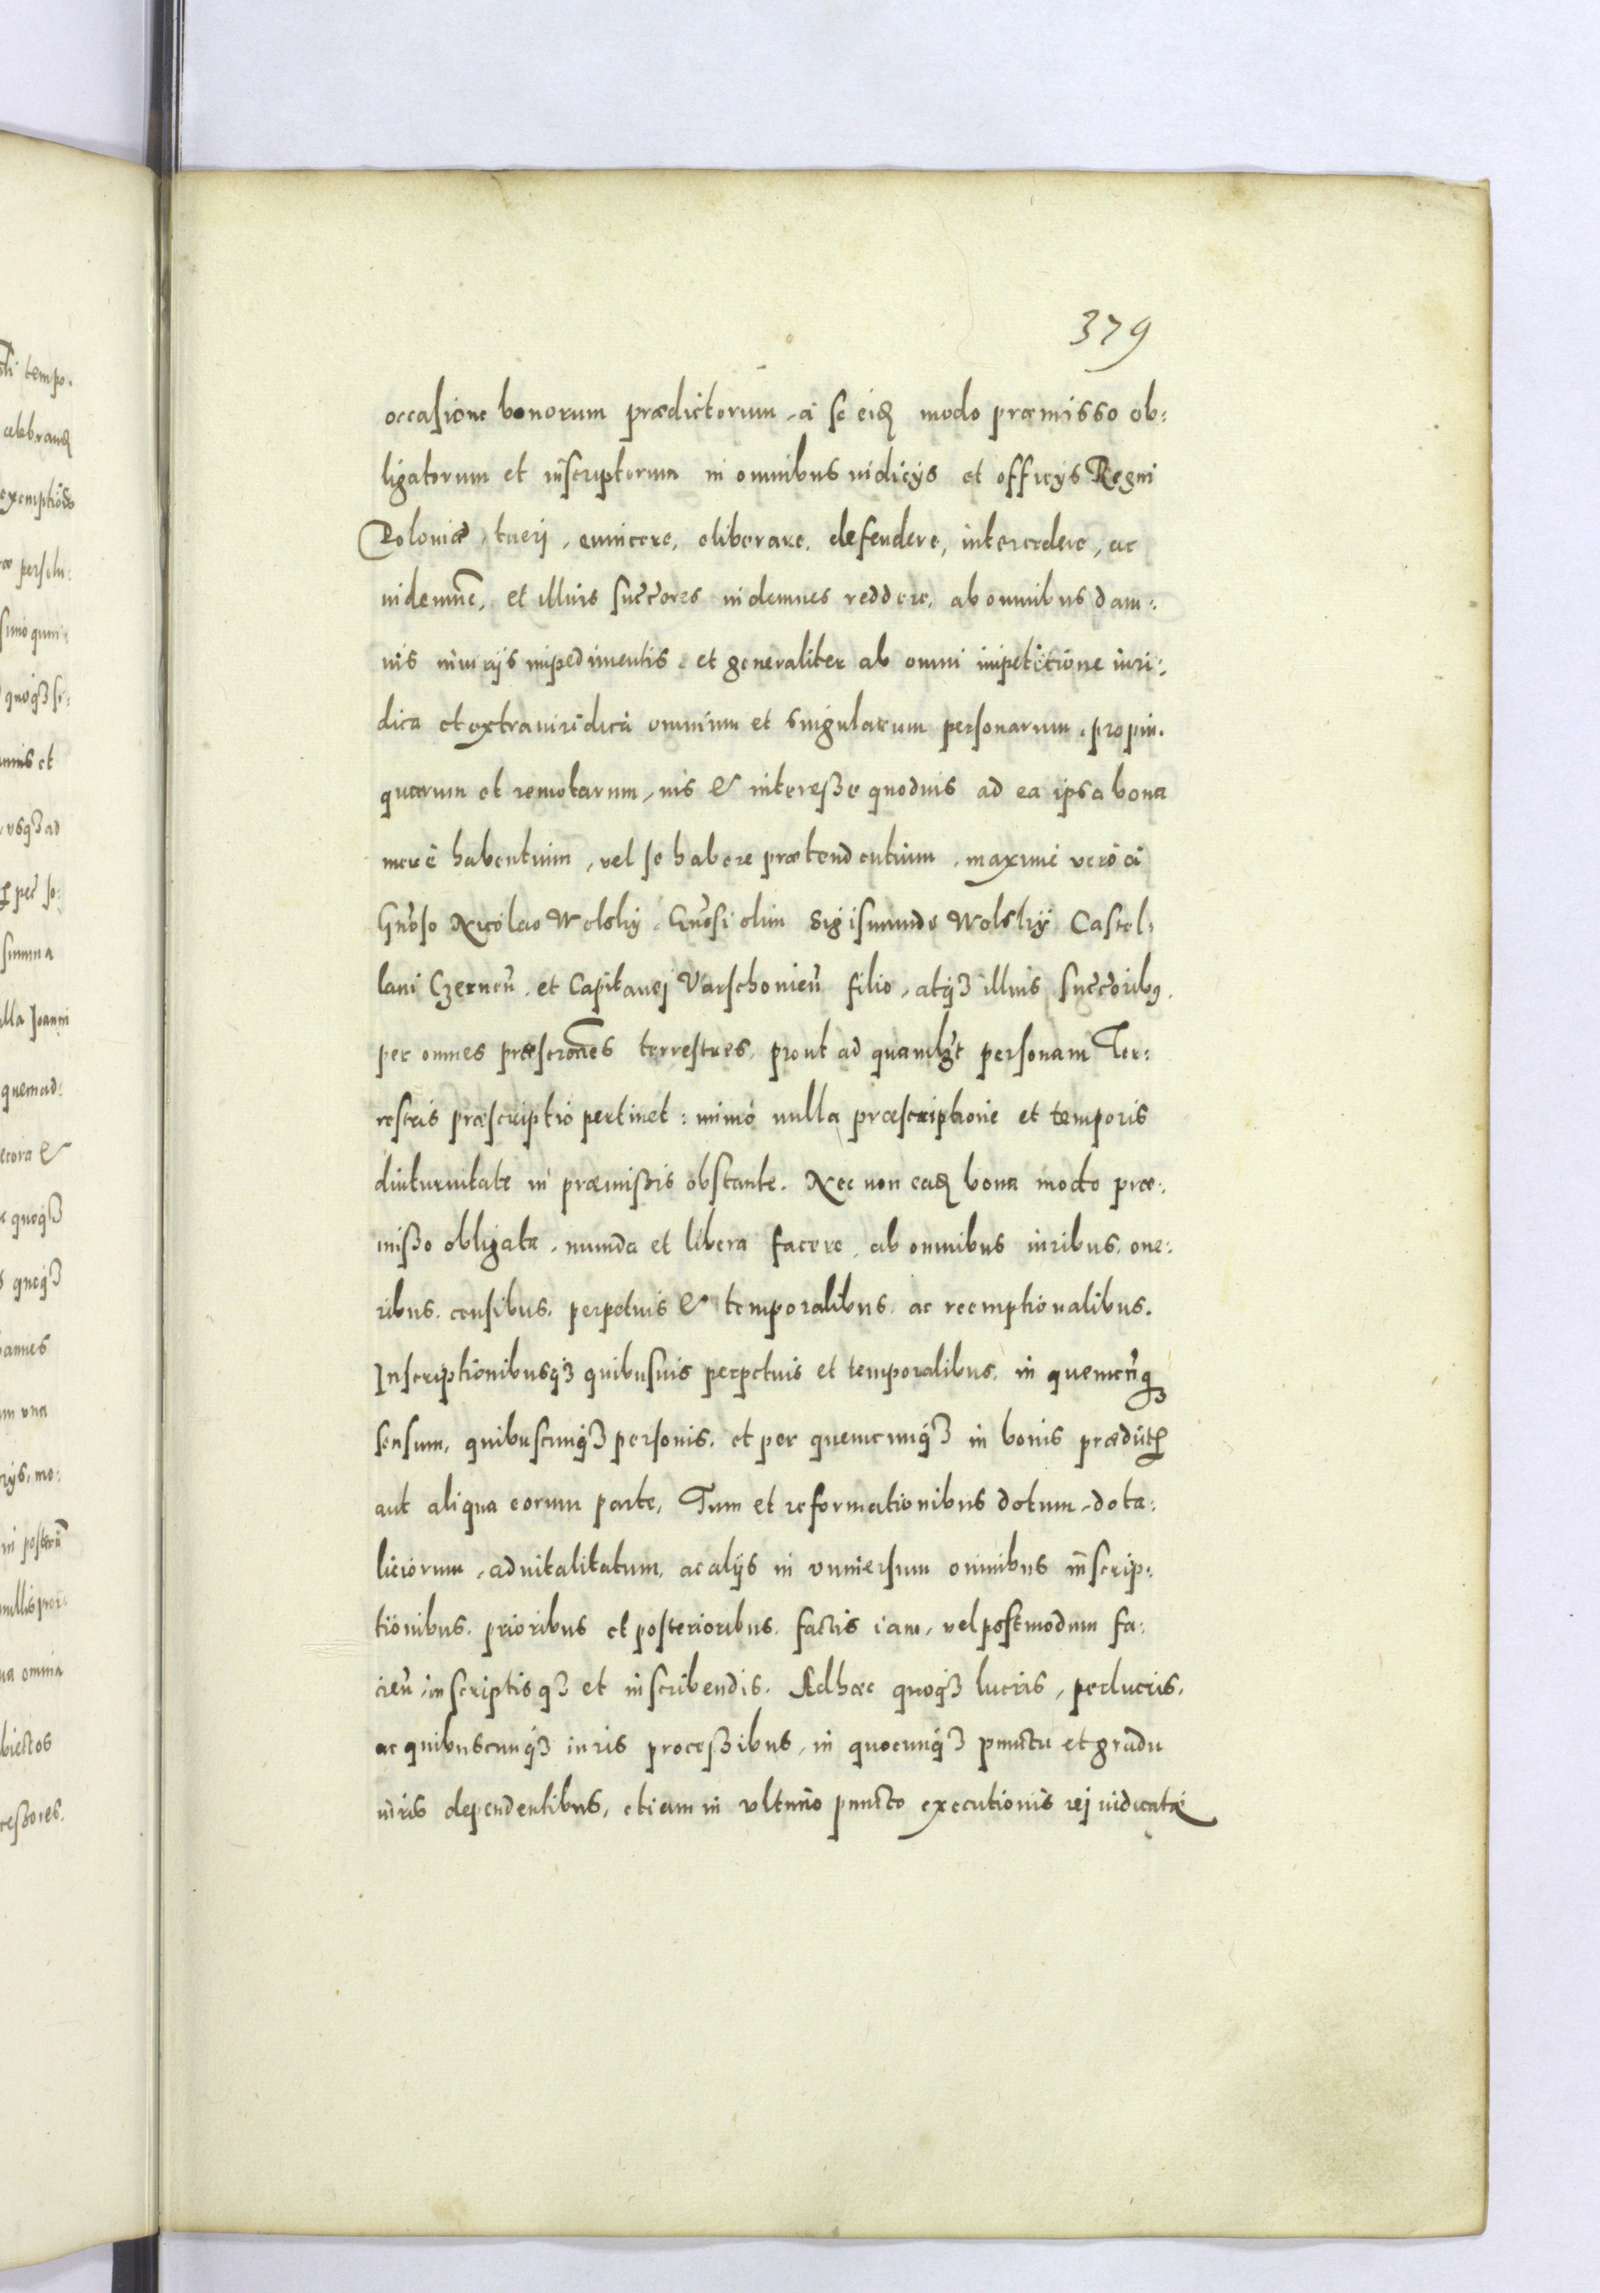 379
occasione bonorum prædictorum, à se eid modo præmisso ob:
ligatorum et inscriptorum in omnibus iudicÿs et officÿs Regni
Poloniæ, tueri, euincere, eliberare, defendere, intercedere, ac
indemnē, et illius succōres indemnes reddere, ab omnibus dam:
nis iniurÿs impedimentis, et generaliter ab omni impetitione iuri:
dica et extraiuridica omnium et singularum personarum, propin:
quarum et remotarum, ius & interesse quoduis ad ea ipsa bona
merè habentium, vel se habere prætendentium, maximè verò à
Gnōso Nicolao Wolskÿ, Gnōsi olim Sigismundo Wolskÿ Castel:
lani Czerneñ, et Capitanej Varschonieñ filio, atqȝ illius succōribꝰ,
per omnes præscrōnes terrestres, prout ad quamlȝt personam Ter:
restris præscriptio pertinet: immò nulla præscriptione et temporis
diuturnitate in præmissis obstante. Nec non ead bona modo præ:
misso obligata, munda et libera facere, ab omnibus iuribus, one:
ribus, censibus, perpetuis & temporalibus, ac reemptionalibus.
Inscriptionibusqȝ quibusuis perpetuis et temporalibus, in quemcūqȝ
sensum, quibuscunqȝ personis, et per quemcunqȝ in bonis prædict
aut aliqua eorum parte, Tum et reformationibus dotum, dota:
liciorum, aduitalitatum, ac alÿs in vniuersum omnibus inscrip:
tionibus, prioribus et posterioribus, factis iam, vel postmodum fa:
cieñ, inscriptisqȝ et inscribendis. Adhæc quoqȝ lucris, perlucris,
ac quibuscunqȝ iuris processibus, in quocunqȝ punctu et gradu
iuris dependentibus, etiam in vltimo puncto executionis rej iudicatæ